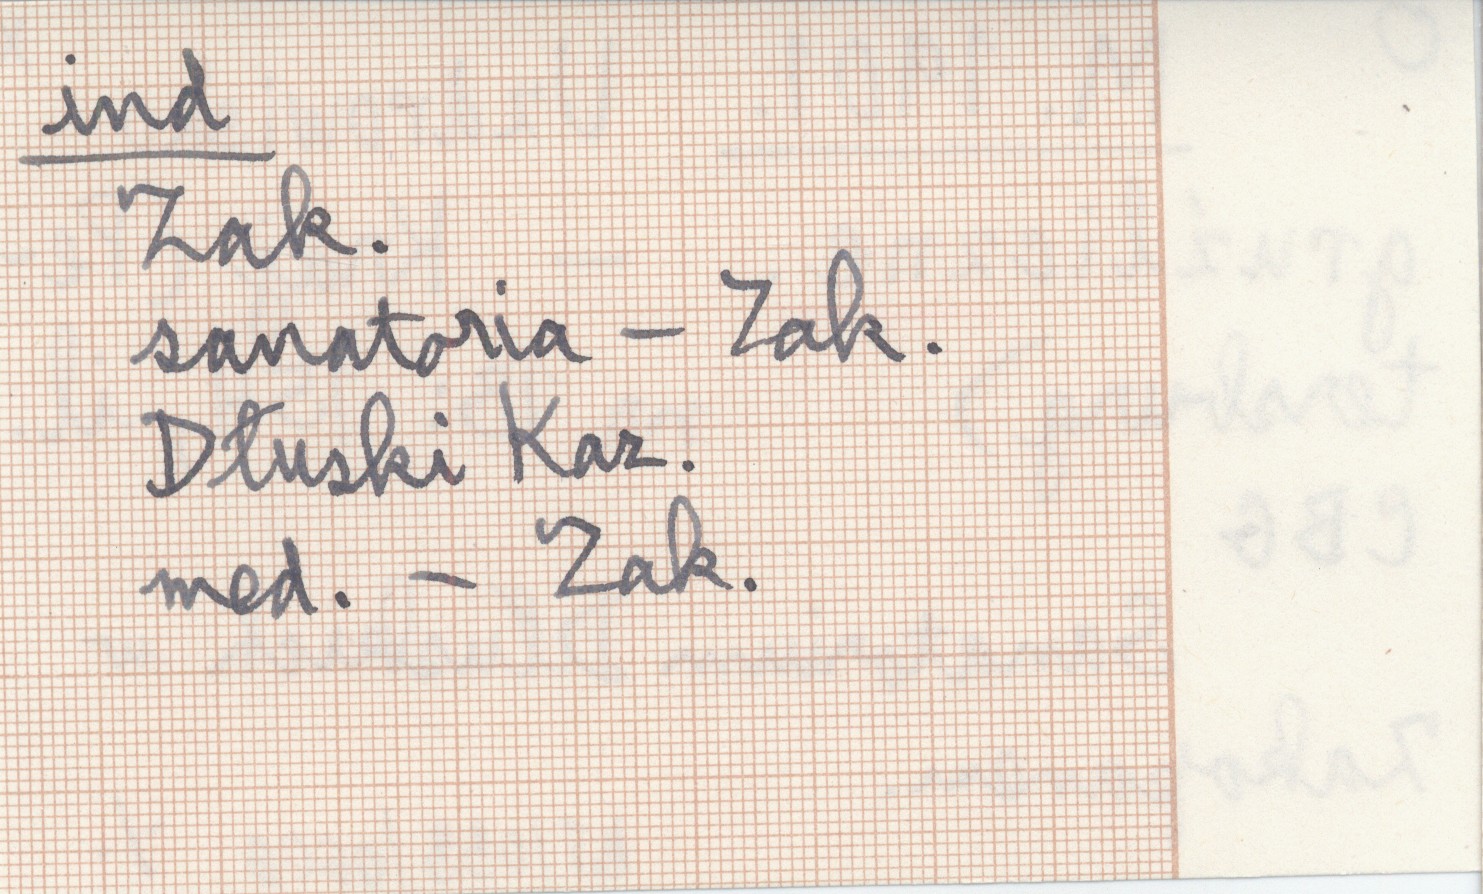 ind
Zak.
sanatoria – Zak.
Dłuski Kaz.
med. – Zak.